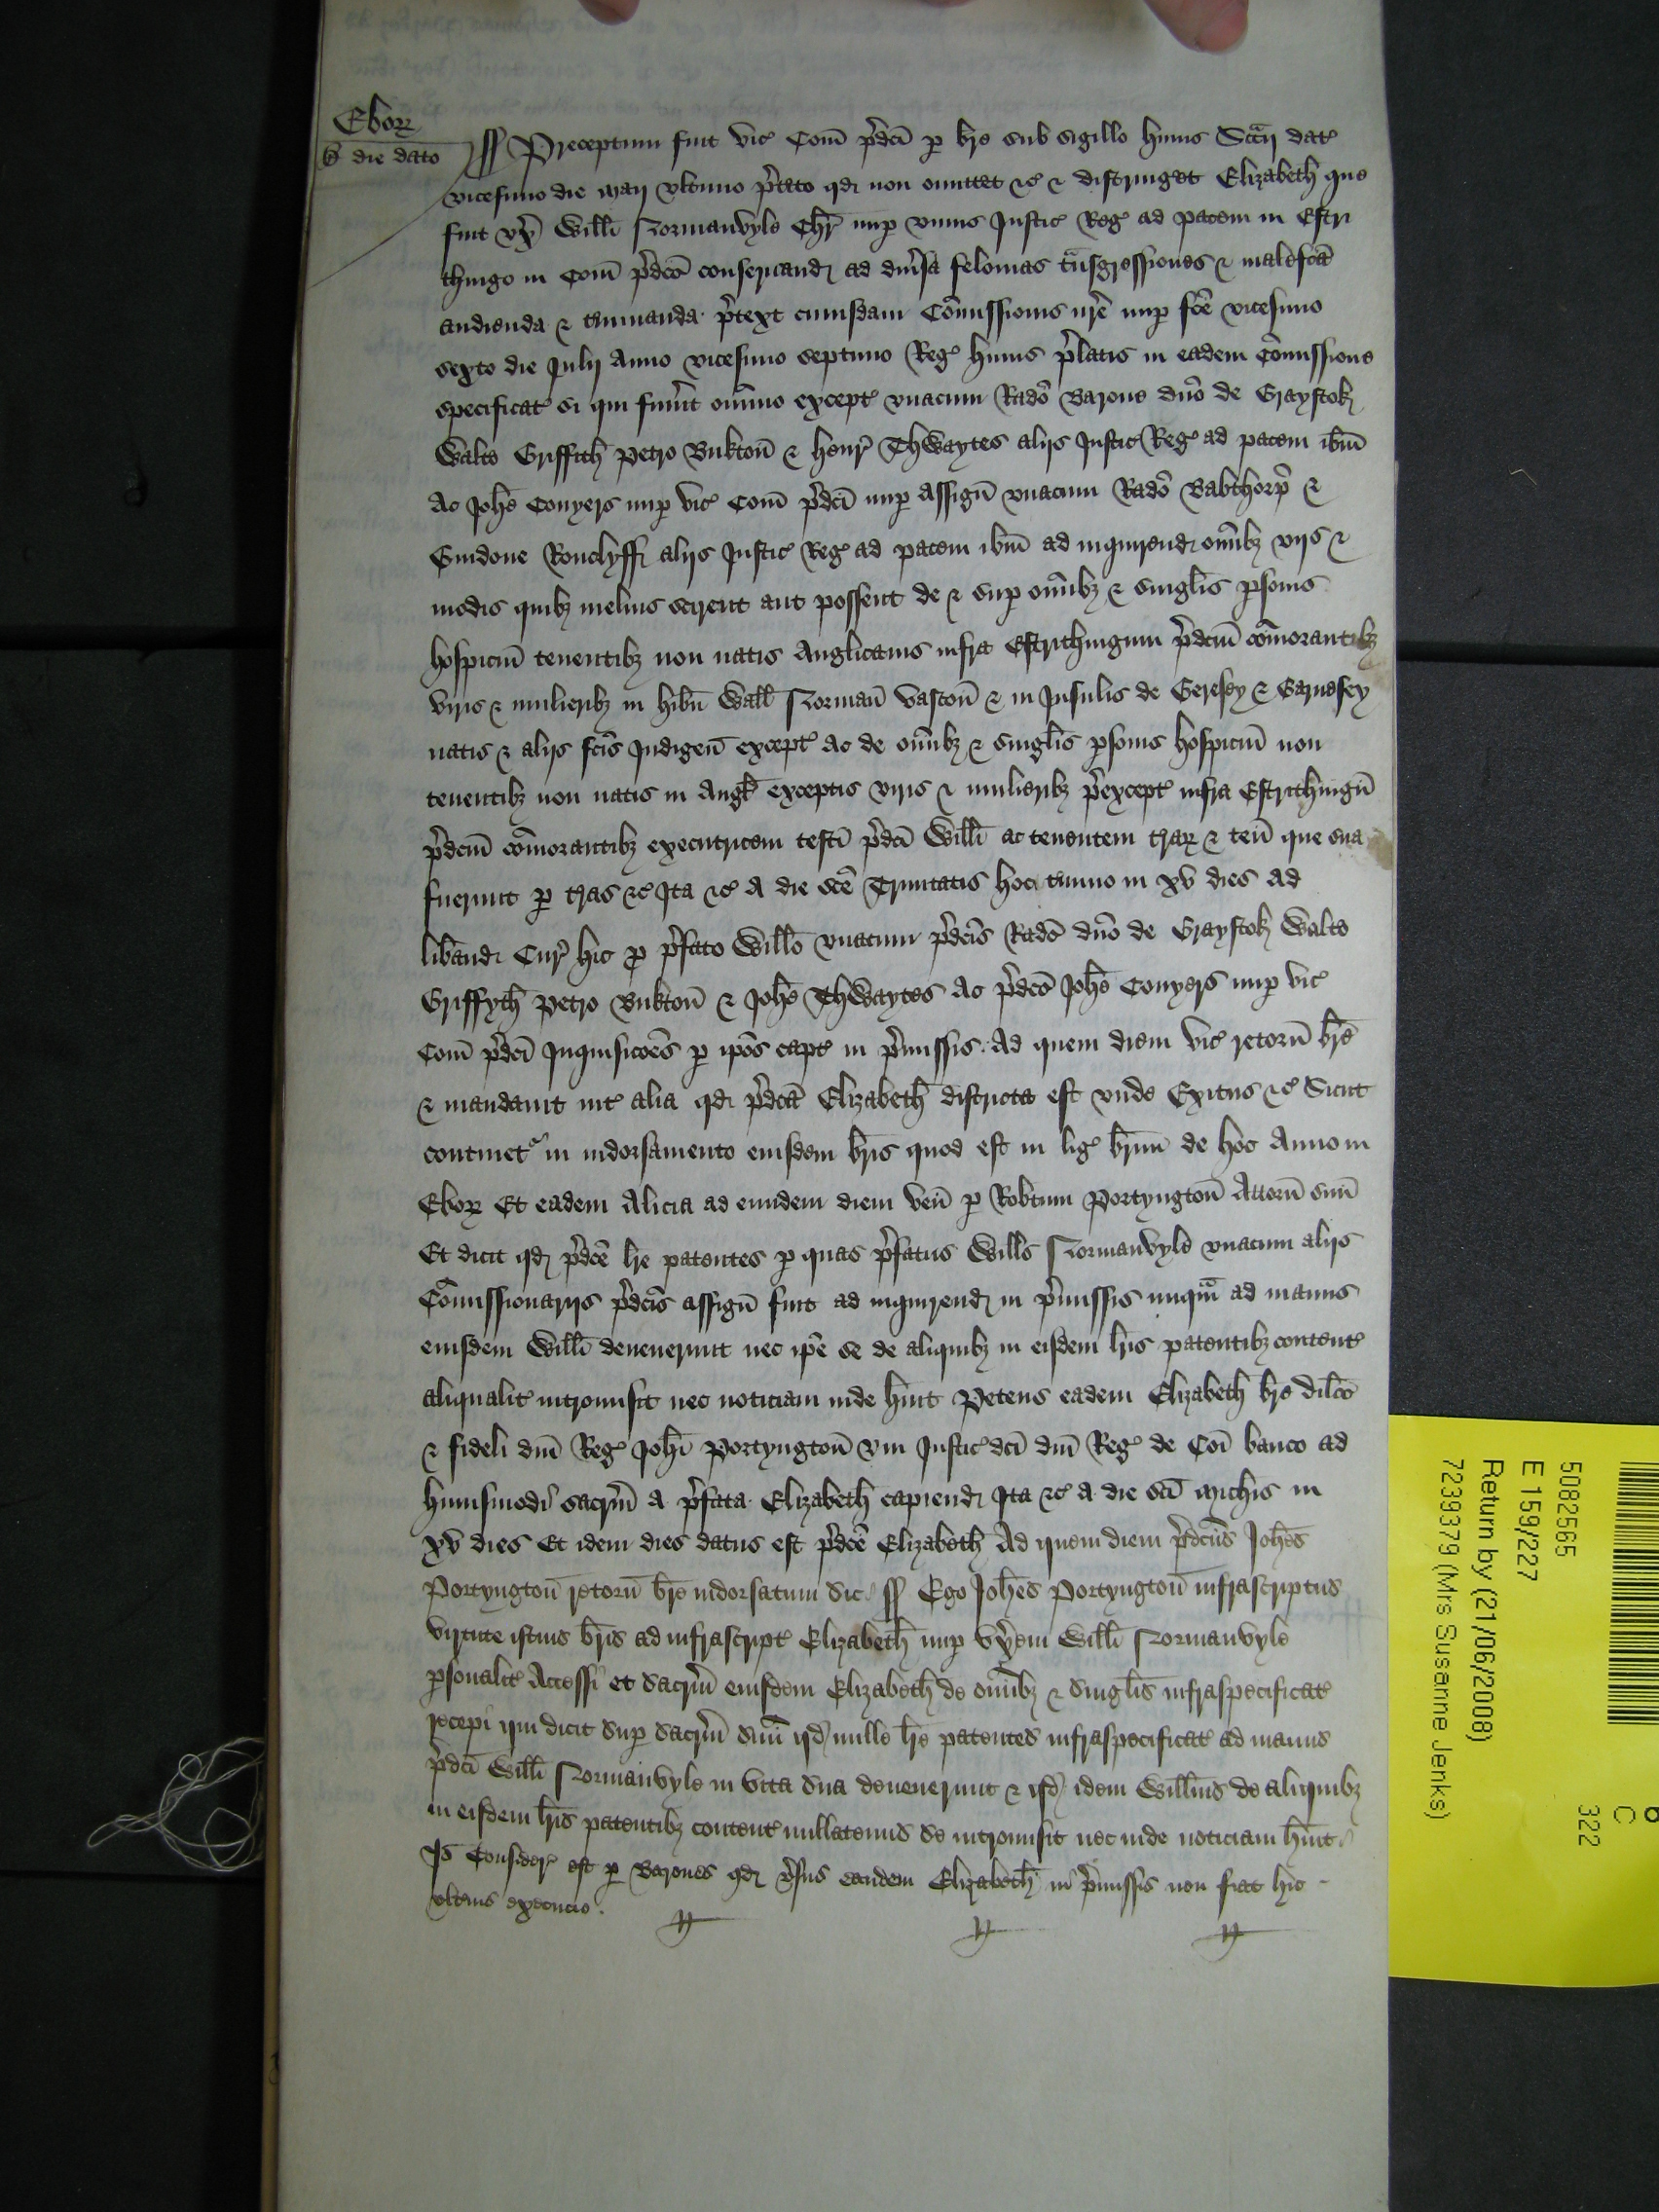 Eborꝝ
die dato
Preceptum fuit vic̃ Com̃ p̃dc̃i ꝑ bre sub sigillo huius Scc̃ij dat̃
vicesimo die maij vltimo p̃terito qd̃ non omittat &c̃ & distringat Elizabeth que
fuit vx̃ Willi Normanvyle Chr̃ nup̱ vnius Justic̃ Reg̃ ad pacem in Estri
thingo in Com̃ p̃dc̃o conseruand̃ ad diũsa felonias tñsgressiones & malefc̃a
audienda & t̃minanda p̃text cuiusdam Com̃issionis nr̃e nup̱ fc̃e vicesimo
sexto die Julij Anno vicesimo septimo Reg̃ huius p̃latis in eadem Com̃issione
specificat̃ si qui fuer̃nt om̃ino except̃ vnacum Rado Barone dño de Graystok
Walt̃o Griffith Petro Bukton̄ & Henr̃ Thwaytes alijs Justic̃ Reg̃ ad pacem ibm̃
Ac Johe Conyers nup̱ vic̃ Com̃ p̃dc̃i nup̱ assign̄ vnacum Rado Babthorp̃ &
Guidone Rouclyff alijs Justic̃ Reg̃ ad pacem ibm̃ ad inquirend̃ om̃ibꝫ vijs &
modis quibꝫ melius scirent aut possent de & sup̱ om̃ibꝫ & singl̃is ꝑsonis
hospiciũ tenentibꝫ non natis Anglicanis infra Estrithingum p̃dcm̃ com̃orantibꝫ
viris & mulieribꝫ in hibñ Wall̃ Normañ Vascoñ & in Insulis de Geresey & Garnesey
natis & alijs fc̃is Indigeñ except̃ Ac de om̃ibꝫ & singl̃is ꝑsonis hospiciũ non
tenentibꝫ non natis in Angl̃ exceptis viris & mulieribꝫ p̃except̃ infra Estrithingũ
p̃dcm̃ com̃orantibꝫ executricem testi p̃dc̃i Willi ac tenentem t̃rarꝝ & teñ que sua
fuerunt ꝑ t̃ras &c̃ Ita &c̃ A die sc̃e Trinitatis hoc t̃mino in xv dies Ad
libãnd̃ Cur̃ hic ꝓ p̃fato Willo vnacum p̃dc̃is Rado dño de Graystok Walt̃o
Griffyth Petro Bukton̄ & Johe Thwaytes Ac p̃dc̃o Johe Conyers nup̱ vic̃
Com̃ p̃dc̃i Inquisicões ꝑ ip̃os capt̃ in p̃missis. Ad quem diem vic̃ retorñ br̃e
& mandauit int̃ alia qd̃ p̃dc̃a Elizabeth districta est vnde Exitus &c̃ Sicut
continet̃ in indorsamento eiusdem br̃is quod est in lig̃ br̃ium de hoc Anno in
Eborꝝ Et eadem Alicia ad eundem diem veñ ꝑ Robtum Portyngton̄ Attorñ suũ
Et dicit qd̃ p̃dc̃e lr̃e patentes ꝑ quas p̃fatus Wills Normanvyle vnacum alijs
Com̃issionarijs p̃dc̃is assigñ fuit ad inquirend̃ in p̃missis nunqm̃ ad manus
eiusdem Willi deuenerunt nec ip̃e se de aliquibꝫ in eisdem lr̃is patentibꝫ content̃
aliqualit̃ intromisit nec noticiam inde h̃uit Petens eadem Elizabeth br̃e dilc̃o
& fideli dñi Reg̃ Johi Portyngton̄ vni Justic̃ dc̃i dñi Reg̃ de Coĩ banco ad
huiusmodi sacr̃m a p̃fata Elizabeth capiend̃ Ita &c̃ a die sc̃i Michis in
xv dies Et idem dies datus est p̃dc̃e Elizabeth Ad quem diem p̃dc̃us Johes
Portyngton̄ retorñ br̃e indorsatum sic. Ego Johes Portyngton̄ infrascriptus
virtute istius br̃is ad infrascript̃ Elizabeth nup̱ vx̃em Willi Normanvyle
ꝑsonalit̃ Accessi et sacr̃m eiusdem Elizabeth de om̃ibꝫ & singl̃is infraspecificat̃
recepi qui dicit sup̱ sacr̃m suũ qd̃ nulle lr̃e patentes infraspecificat̃ ad manus
p̃dc̃i Willi Normanvyle in vita sua deuenerunt & qd̃ idem Willms de aliquibꝫ
in eisdem lr̃is patentibꝫ content̃ nullatenus se intromisit nec inde noticiam h̃uit.
Jõ Consider̃ est ꝑ Barones qd̃ ṽsus eandem Elizabeth in p̃missis non fiat hic
vlterius execucio.
5082565
E 159/227
Return by (21/06/2008)
7239379 (Mrs Susanne Jenks)
C
322